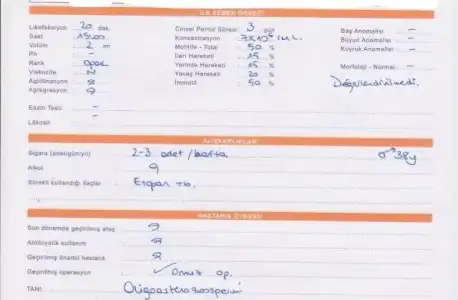 Likefaksiyon 20 dak. Cinsel Perhiz Süresi 3 gün Baş Anomalisi –
Saat 15:00 Konsantrasyon 7x10⁶/mL. Boyun Anomalisi –
Volüm 2 ml Motilite - Total 50 % Kuyruk Anomalisi –
Ph – İleri Hareketi 15 %
Renk opak Yerinde Hareketi 15 % Morfoloji - Normal –
Viskozite N Yavaş Hareketi 20 %
Aglütinasyon İmmotil 50 % Değerlendirilmedi.
Agregasyon
Eozin Testi –
Lökosit –
ALIŞKANLIKLARI
Sigara (adet/gün/yıl) 2-3 adet /hafta ♂ 38y
Alkol
Sürekli kullandığı ilaçlar tb.
HASTANIN ÖYKÜSÜ
Son dönemde geçirilmiş ateş
Antibiyotik kullanımı
Geçirilmiş önemli hastalık
Geçirilmiş operasyon ✓ Omuz op.
TANI: Oligoastenozoospermi